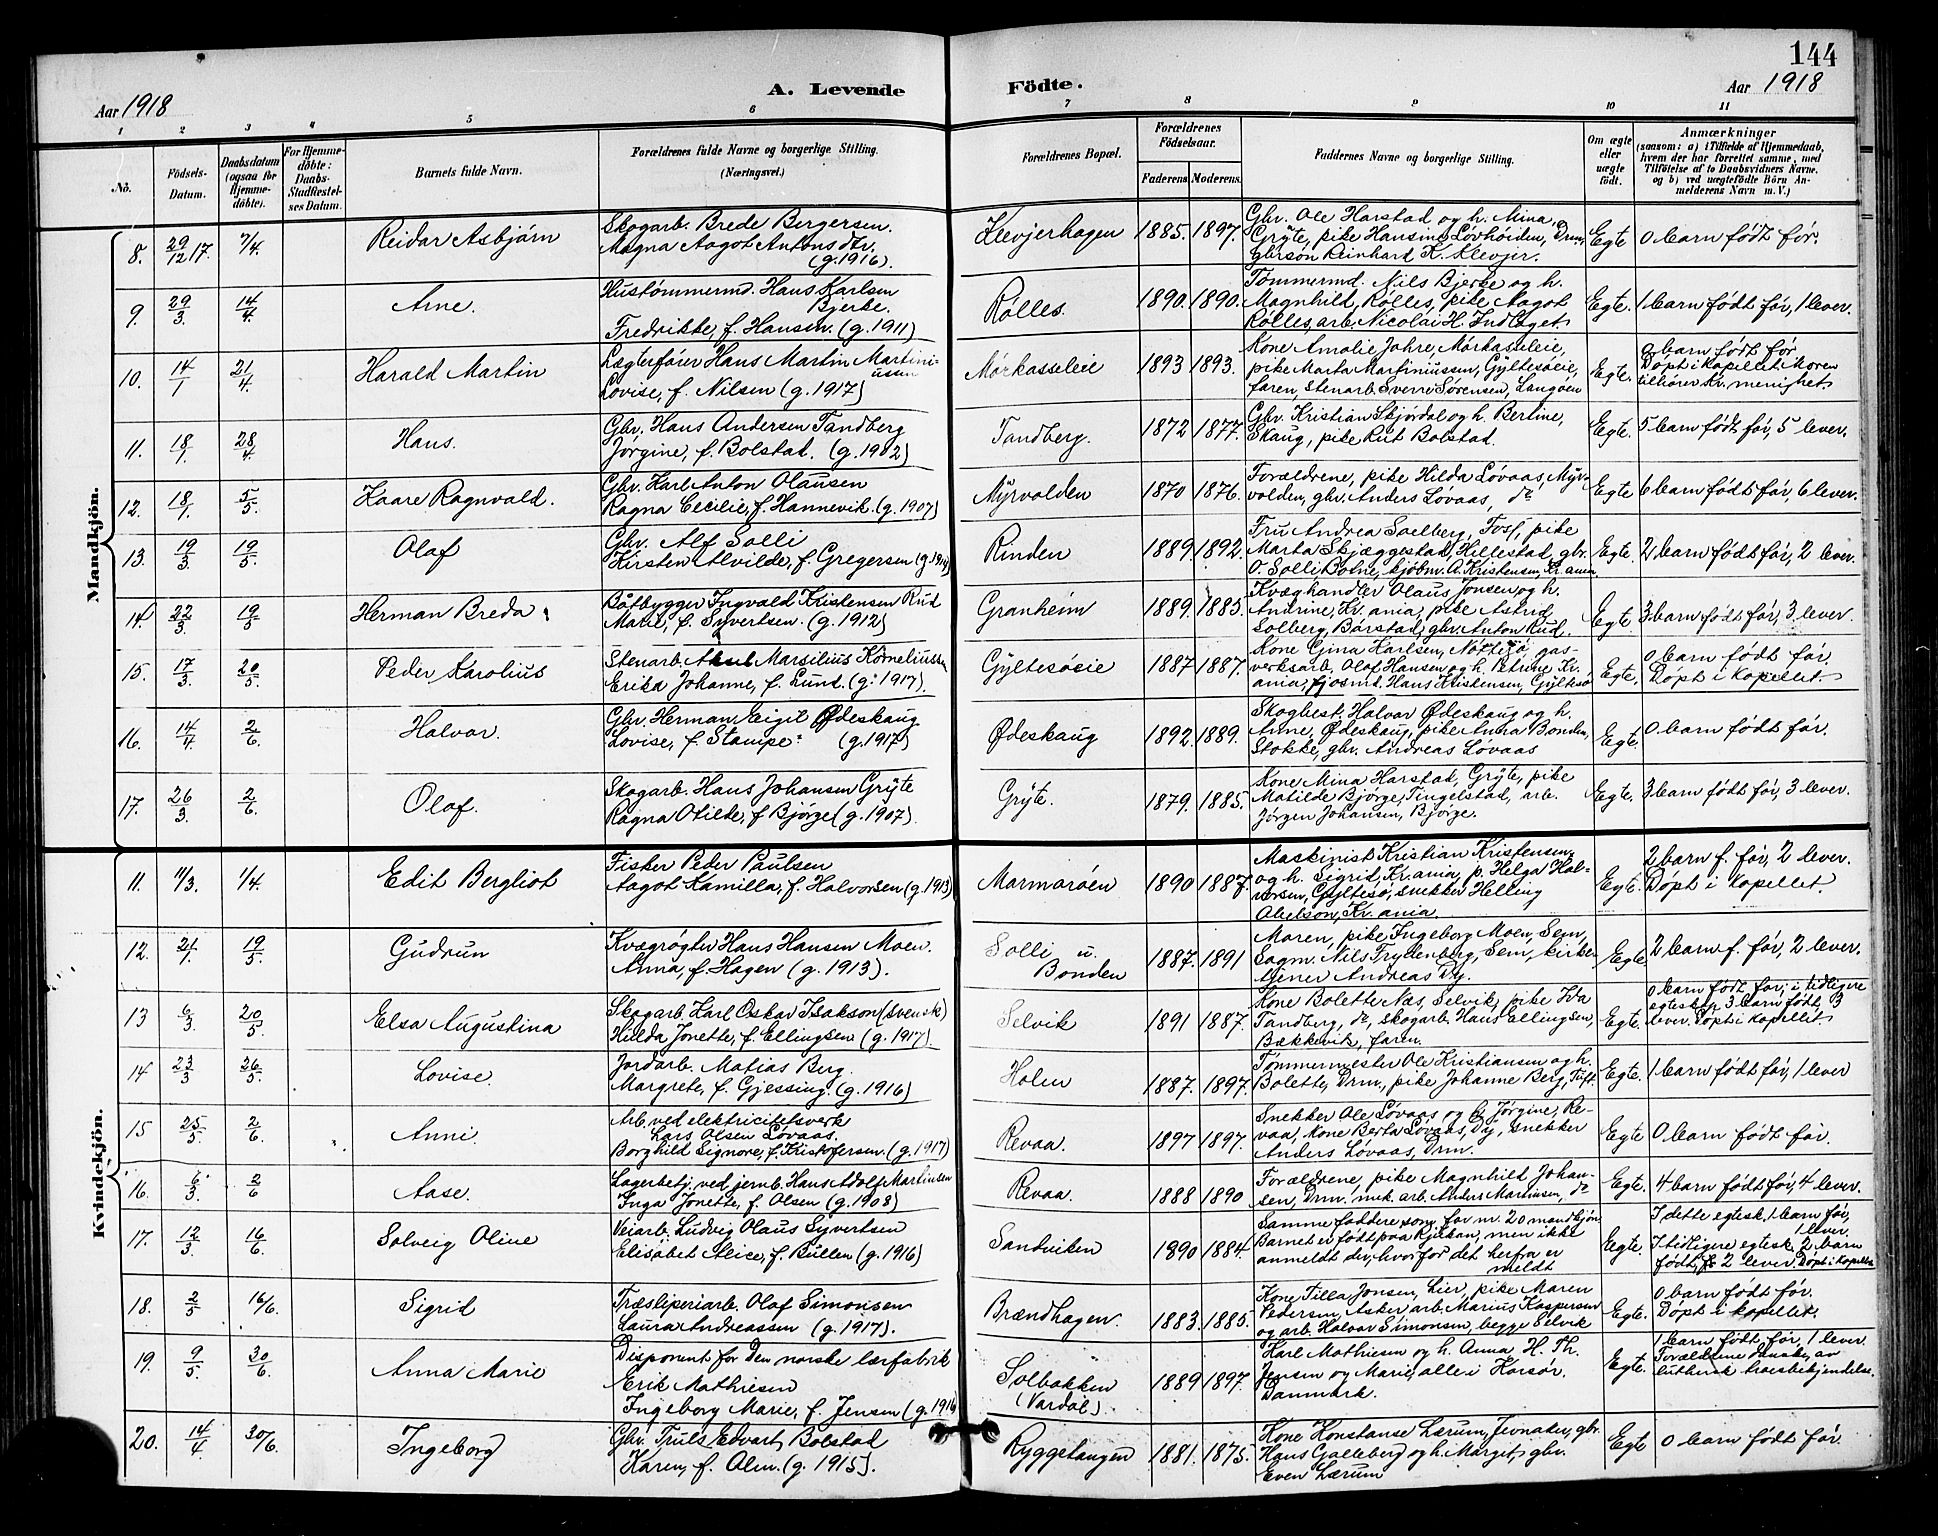 144
A. Levende Födte.
Aar 1918
Aar 1918
1 2 3 4 5 6 7 8 9 10 11
No.
Födsels-
Datum.
Daabsdatum
(ogsaa for
Hjemme-
döbte).
For Hjemme-
döbte:
Daabs-
Stadfæstel-
ses Datum.
Barnets fulde Navn.
Forældrenes fulde Navne og borgerlige Stilling.
(Næringsvei.)
Forældrenes Bopæl.
Forældrenes
Födselsaar.
Faderens.
Moderens.
Faddernes Navne og borgerlige Stilling.
Om ægte
eller
uægte
födt.
Anmærkninger
(saasom: a) i Tilfælde af Hjemmedaab,
hvem der har forrettet samme, med
Tilföielse af to Daabsvidners Navne.
og b) ved uægtefödte Börn An-
melderens Navn m. V.)
Mandkjön.
8. 29/12 17. 7/4. Reidar Asbjørn
Skogarb. Brede Bergersen.
Magna Aagot Antonsdtr.
(g. 1916).
Klevjerhagen 1885. 1897.
Gbr. Ole Harstad og h. Mina,
Grÿte, pike Hansine Løvhøiden, Drm,
gbrsøn Reinhard K. Klevjer.
Egte 0 barn født før.
9. 29/3 14/4 Arne.
Hustømmermd. Hans Karlsen
Bjerke.
Fredrikke, f. Hansen. (g. 1911)
Rølles. 1890. 1890.
Tømmermd. Nils Bjerke og h.
Magnhild, Rølles, pike Aagot
Rølles, arb. Nicolai H. Indlaget
Egte. 1 barn født før, 1 lever.
10. 14/1 21/4 Harald Martin
Lægterfører Hans Martin Martini-
ussen
Lovise, f. Nilsen (g. 1917)
Mørkasseleie 1893 1893.
Kone Amalie Jahre, Mørkasseleie,
pike Marta Martiniussen, Gyltesøeie,
faren, stenarb. Sverre Sørensen, Langøen
Egte.
0 barn født før
Døpt i kapellet. Moren
tilhører Kr. menighet
11. 18/1 28/4 Hans.
Gbr. Hans Andersen Tandberg
Jørgine, f. Bolstad. (g. 1902)
Tandberg. 1872 1877.
Gbr. Kristian Skjørdal og h. Bertine,
Skaug, pike Rut Bolstad.
Egte. 5 barn født før, 5 lever.
12. 18/1. 5/5. Kaare Ragnvald.
Gbr. Karl Anton Olausen
Ragna Cecilie, f. Hannevik. (g. 1907)
Myrvolden 1870 1876.
Forældrene, pike Hilda Løvaas, Myr-
volden, gbr. Anders Løvaas, do
Egte 6 barn født før, 6 lever.
13. 19/3 19/5. Olaf
Gbr. Alf Solli
Kirsten Alvilde, f. Gregersen
Rinden 1889. 1892.
Fru Andrea Solberg, Fosf, pike
Marta Skjæggestad, Hillestad, gbr.
O. Solli Botne, kjøbm. A. Kristensen, Kr.ania.
Egte. 2 barn født før, 2 lever.
14. 22/3 19/5 Herman Breda
Båtbygger Ingvald Kristensen Rud
Marie, f. Syvertsen. (g. 1912)
Granheim 1889. 1883.
Kvæghandler Olaus Jonsen og h.
Andrine, Kr.ania, pike Astrid
Solberg, Børstad, gbr. Anton Rud.
Egte. 3 barn født før, 3 lever.
15. 17/3. 20/5. Peder Karolius
Stenarb. Aksel Marsilius Korneliussen
Erika Johanne, f. Lund. (g. 1917).
Gyltesøeie 1887 1887.
Kone Gina Karlsen, Nøtterø, gas-
verksarb. Olaf Hansen og h. Petrine Kr.
ania, fjosmd. Hans Kristensen, Gyltesø
Egte.
0 barn født før.
Døpt i kapellet
16. 14/4. 2/6. Halvor.
Gbr. Herman Eigil Ødeskaug
Lovise, f. Stampe. (g. 1917)
Ødeskaug 1892. 1889.
Skogbest. Halvor Ødeskaug og h.
Anne, Ødeskaug, pike Anna Bonden,
Stokke, gbr. Andreas Løvaas
Egte. 0 barn født før.
17. 26/3. 2/6 Olaf.
Skogarb. Hans Johansen Grÿte
Ragna Otilde, f. Bjørge (g. 1907).
Grÿte. 1879. 1885.
Kone Mina Harstad, Grÿte, pike
Matilde Bjørge, Tingelstad, arb.
Jørgen Johansen, Bjørge.
Egte. 3 barn født før, 3 lever.
Kvindekjön.
11. 11/3. 1/4. Edit Bergliot
Fisker Peder Paulsen
Aagot Kamilla, f. Halvorsen (g. 1913)
Marmorøen 1890 1887.
Maskinist Kristian Kristensen
og h. Sigrid, Kr.ania, p. Helga Hal-
vorsen, Gyltesø, snekker Helling
Abelson, Kr.ania.
Egte.
2 barn f. før, 2 lever.
Døpt i kapellet.
12. 21/1. 19/5. Gudrun
Kvægrøgter Hans Hansen Moen.
Anna, f. Hagen (g. 1913).
Solli u.
Bonden 1887. 1891
Moren, pike Ingeborg Moen, Sem,
Sagm. Nils Tryllenberg, Sem, kirke-
tjener Andreas Dÿ.
Egte. 2 barn f. før, 2 lever.
13 6/3. 20/5. Elsa Augustina
Skogarb. Karl Oskar Isakson (svenske)
Hilda Jonette, f. Ellingsen (g. 1917)
Selvik 1891 1887.
Kone Bolette Næs, Selvik, pike Ida
Tandberg, do, skogarb. Hans Ellingsen,
Bækkevik, faren.
Egte.
0 barn født før, i tidligere
egteskap 3 barn født, 3
lever. Døpt i kapellet
14 23/3 26/5. Lovise.
Jordarb. Matias Berg.
Margrete, f. Gjessing. (g. 1916)
Holm 1887. 1897.
Tømmermester Ole Kristiansen og h.
Bolette, Drm, pike Johanne Berg, Tuft.
Egte. 1 barn født før, 1 lever
15 25/5 2/6. Anni.
Arb. ved elektricitetsverk
Lars Olsen Løvaas.
Borghild Signore, f. Kristofersen. (g. 1917)
Revaa. 1897 1897.
Snekker Ole Løvaas og h. Jørgine, Re-
vaa, kone Berta Løvaas, Dÿ, snekker
Anders Løvaas, Drm.
Egte 0 barn født før.
16. 6/3. 2/6 Aase.
Lagerbetj. ved jernb. Hans Adolf Martinsen
Inga Jonette, f. Olsen (g. 1908)
Revaa. 1888 1890
Forældrene, pike Magnhild Johan-
sen, Drm. mek. arb. Anders Martinsen, do
Egte. 4 barn født før, 4 lever.
17. 12/3. 16/6. Solveig Oline
Veiarb. Ludvig Olaus Syvertsen
Elisabet Aleice, f. Bullen (g. 1916)
Sandviken 1890 1884.
Samme faddere som for nr. 20 mandkjøn.
Barnet er født paa Rjukan, men ikke
anmeldt der, hvorfor det herfra er
meldt
Egte.
I dette egtesk. 1 barn før,
1 lever.
I tidligere egtesk. 2 barn
født, 2 lever. Døpt i kapellet
18. 2/5 16/6. Sigrid
Træsliperiarb. Olaf Simonsen
Laura Andreassen (g. 1917).
Brændhagen. 1883. 1885.
Kone Tilla Jonsen, Lier, pike Maren
Pedersen, Asker arb. Marius Kaspersen
og arb. Halvor Simonsen, begge Selvik
Egte.
0 barn født før.
Døpt i kapellet.
19. 9/5. 30/6. Anna Marie
Disponent for Den norske lærfabrik
Erik Mathiesen
Ingeborg Marie, f. Jensen (g. 1916
Solbakken
(Vardal). 1889 1897.
Karl Mathiesen og h. Anna H. Th.
Jensen og Marie, alle i Korsør,
Danmark.
Egte.
1 barn født før, 1 lever.
Forældrene danske, av
luthersk troesbekjendelse.
20. 14/4 30/6. Ingeborg
Gbr. Truls Edvart Bolstad
Karen, f. Alm. (g. 1915).
Ryggetangen 1881. 1875.
Kone Konstanse Lærum, Jevnaker, gbr.
Hans Galleberg og h. Margit, gbr.
Even Lærum
Egte 0 barn født før.